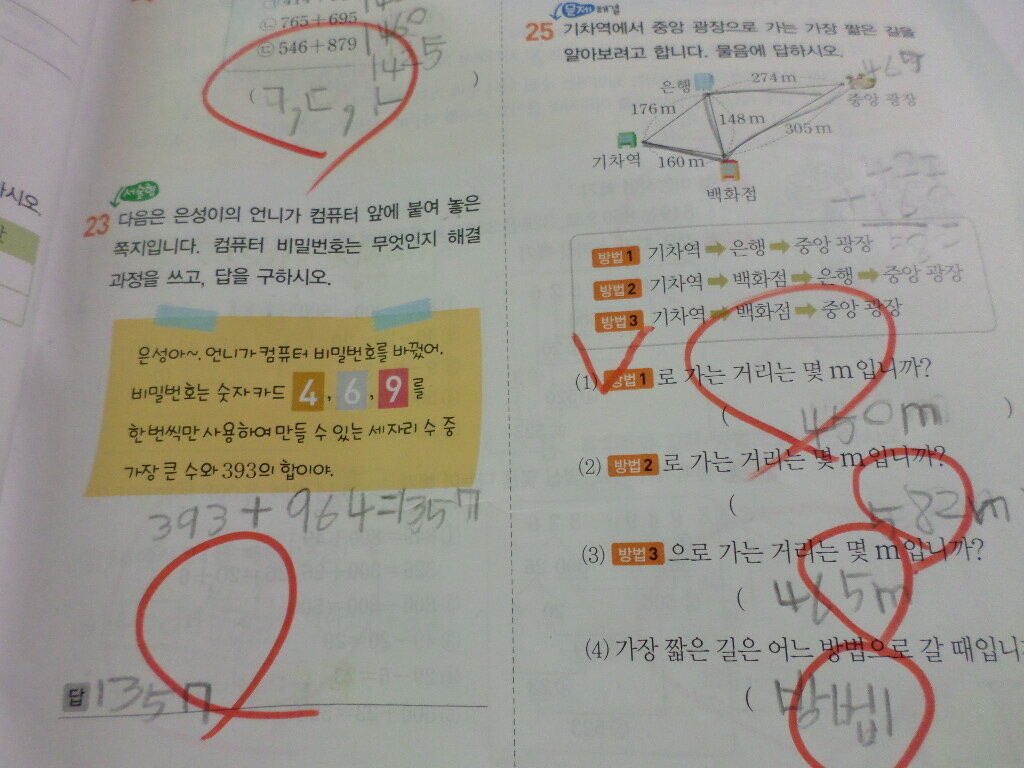 ㄴ 765+695 1460
ㄷ 546+879 1425
( ㄱ, ㄷ, ㄴ )
서술형
23 다음은 은성이의 언니가 컴퓨터 앞에 붙여 놓은
쪽지입니다. 컴퓨터 비밀번호는 무엇인지 해결
과정을 쓰고, 답을 구하시오.
은성아~. 언니가 컴퓨터 비밀번호를 바꿨어.
비밀번호는 숫자 카드 4, 6, 9를
한 번씩만 사용하여 만들 수 있는 세 자리 수 중
가장 큰 수와 393의 합이야.
393+964=1357
답 1357
문제 해결
25 기차역에서 중앙 광장으로 가는 가장 짧은 길을
알아보려고 합니다. 물음에 답하시오.
274 m
은행
중앙 광장
176 m
148 m
305 m
기차역
160 m
백화점
방법1 기차역 ➡ 은행 ➡ 중앙 광장
방법2 기차역 ➡ 백화점 ➡ 은행 ➡ 중앙 광장
방법3 기차역 ➡ 백화점 ➡ 중앙 광장
(1) 방법1 로 가는 거리는 몇 m입니까?
( 450m )
(2) 방법2 로 가는 거리는 몇 m입니까?
( 582m
(3) 방법3 으로 가는 거리는 몇 m입니까?
( 465m
(4) 가장 짧은 길은 어느 방법으로 갈 때입니
( 방법1